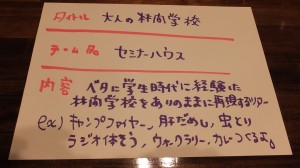 タイトル 大人の林間学校
チーム名 セミナーハウス
内容 ベタに学生時代に経験した
林間学校をありのままに再現するツアー
ex) キャンプファイヤー、肝だめし、虫とり
ラジオ体そう、ウォークラリー、カレーつくるよ。